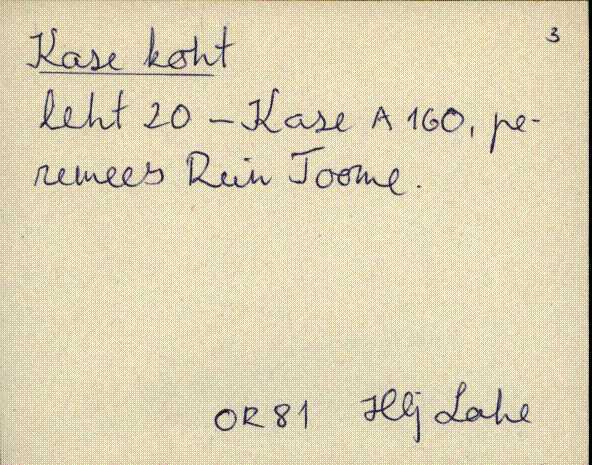 3
Kase koht
leht 20 – Kase A 160, pe-
remees Rein Toome.
OR81 Hlj Lahe